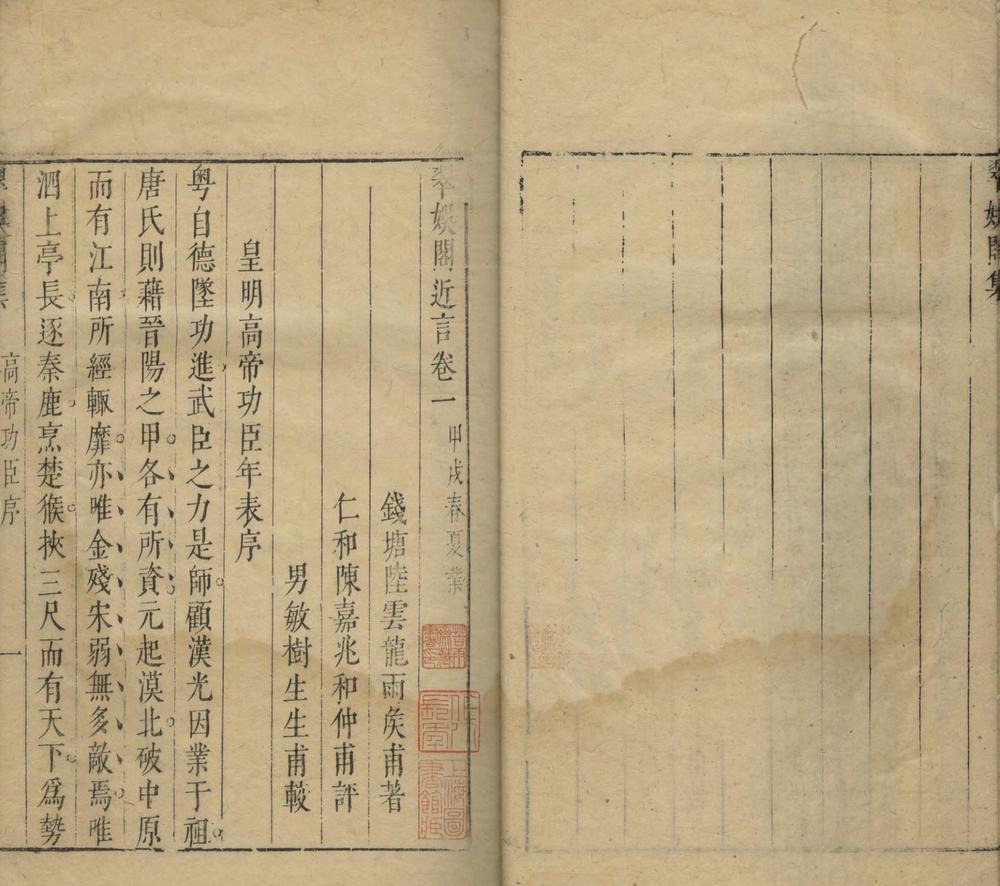 翠娛閣集
翠娛閣近言卷一 甲戌春夏業
錢塘陸雲龍雨矦甫著
仁和陳嘉兆和仲甫評
男敏樹生生甫較
皇明高帝功臣年表序
粤自德墜功進武臣之力是師顧漢光因業于祖
唐氏則藉晉陽之甲各有所資元起漠北破中原
而有江南所經輙靡亦唯金殘宋弱無多敵焉唯
泗上亭長逐秦鹿烹楚猴挾三尺而有天下爲勢
高帝功臣序 一
上海圖書館藏